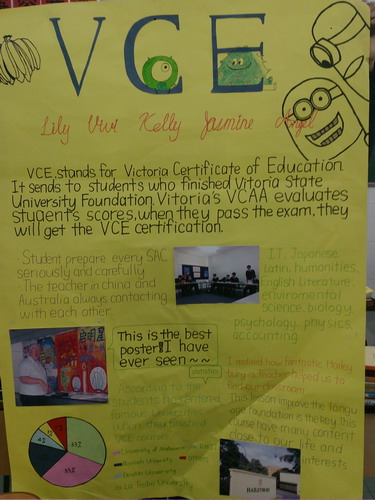 VCE
Lily Vivi Kelly Jasmine Angel
VCE stands for Victoria Certificate of Education
It sends to students who finished Vitoria State
University Foundation. Vitoria's VCAA evaluates
student's scores, when they pass the exam, they
will get the VCE certification.
· Student prepare every SAC
seriously and carefully
· The teacher in china and
Australia always contacting
with each other.
IT, Japanese
Latin, humanities,
English Literature,
enviromental
science, biology,
psychology, physics,
accounting
This is the best
poster I have
ever seen ~~
statistics
According to the
students have entered
famous
when they finished
VCE courses
I realized how fantastic Hailey
bury is. Teacher helped us to
find our classroom
This lesson improve the langu
age foundation is the key This
course have many content
close to our life and
interests
33%
33%
University of Melbourne
Monash University
others
Deakin University
La Trobe University
HAILEYBURY